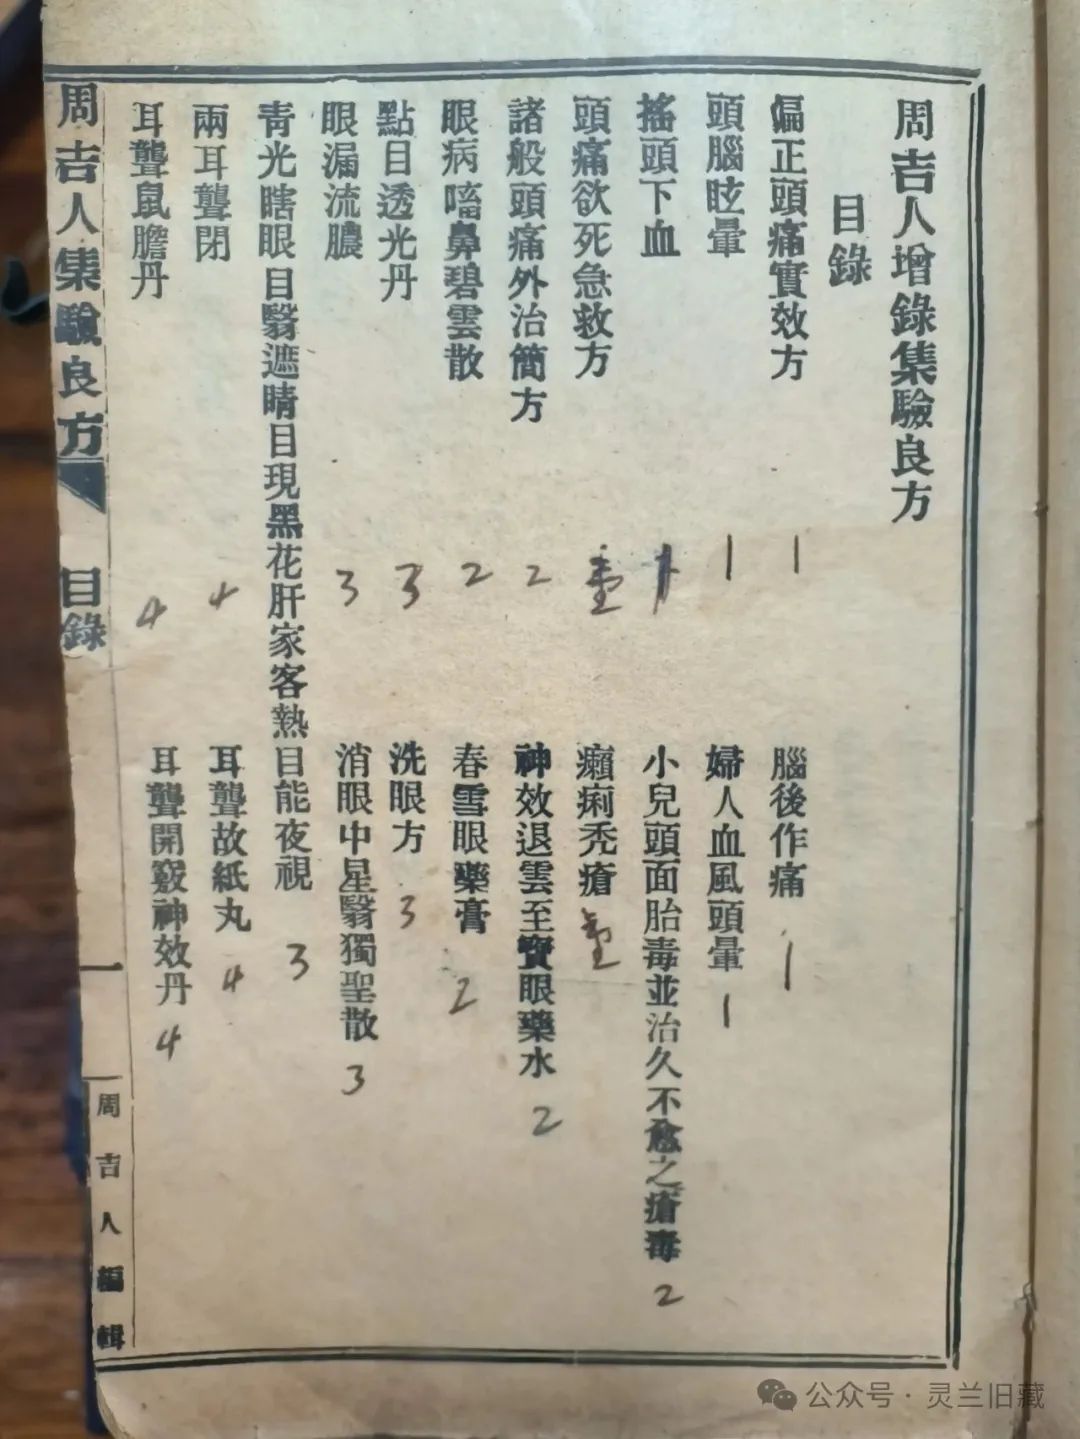 周吉人增錄集驗良方
目錄
偏正頭痛實效方 1
腦後作痛 1
頭腦眩暈 1
婦人血風頭暈 1
搖頭下血 1
小兒頭面胎毒並治久不愈之瘡毒 2
頭痛欲死急救方
癩痢禿瘡
諸般頭痛外治簡方 2
神效退雲至寶眼藥水 2
眼病㗜鼻碧雲散 2
春雪眼藥膏 2
點目透光丹 3
洗眼方 3
眼漏流膿 3
消眼中星翳獨聖散 3
青光瞎眼目翳遮睛目現黑花肝家客熱
目能夜視 3
兩耳聾閉 4
耳聾故紙丸 4
耳聾鼠膽丹 4
耳聾開竅神效丹 4
周吉人集驗良方
目錄
一
周吉人編輯
公众号·灵兰旧藏